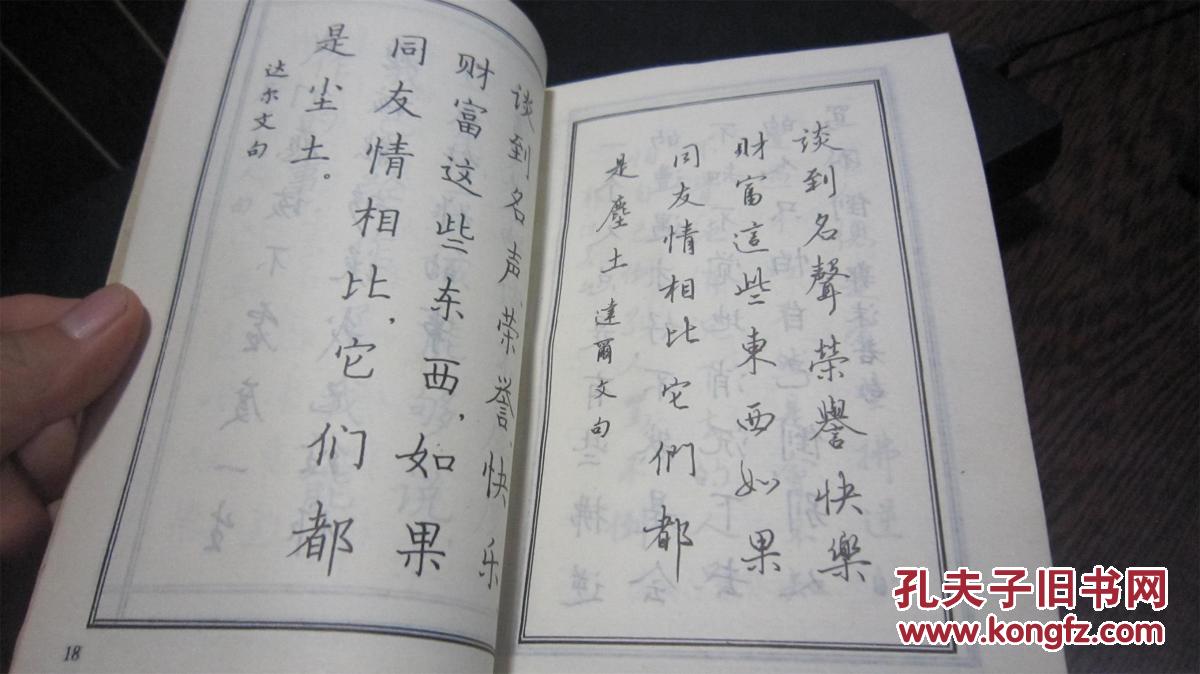 谈到名声、荣誉、快乐、
财富这些东西，如果
同友情相比，它们都
是尘土。
达尔文句
18
談到名聲榮譽快樂
財富這些東西如果
同友情相比它們都
是塵土 達爾文句
孔夫子旧书网
www.kongfz.com